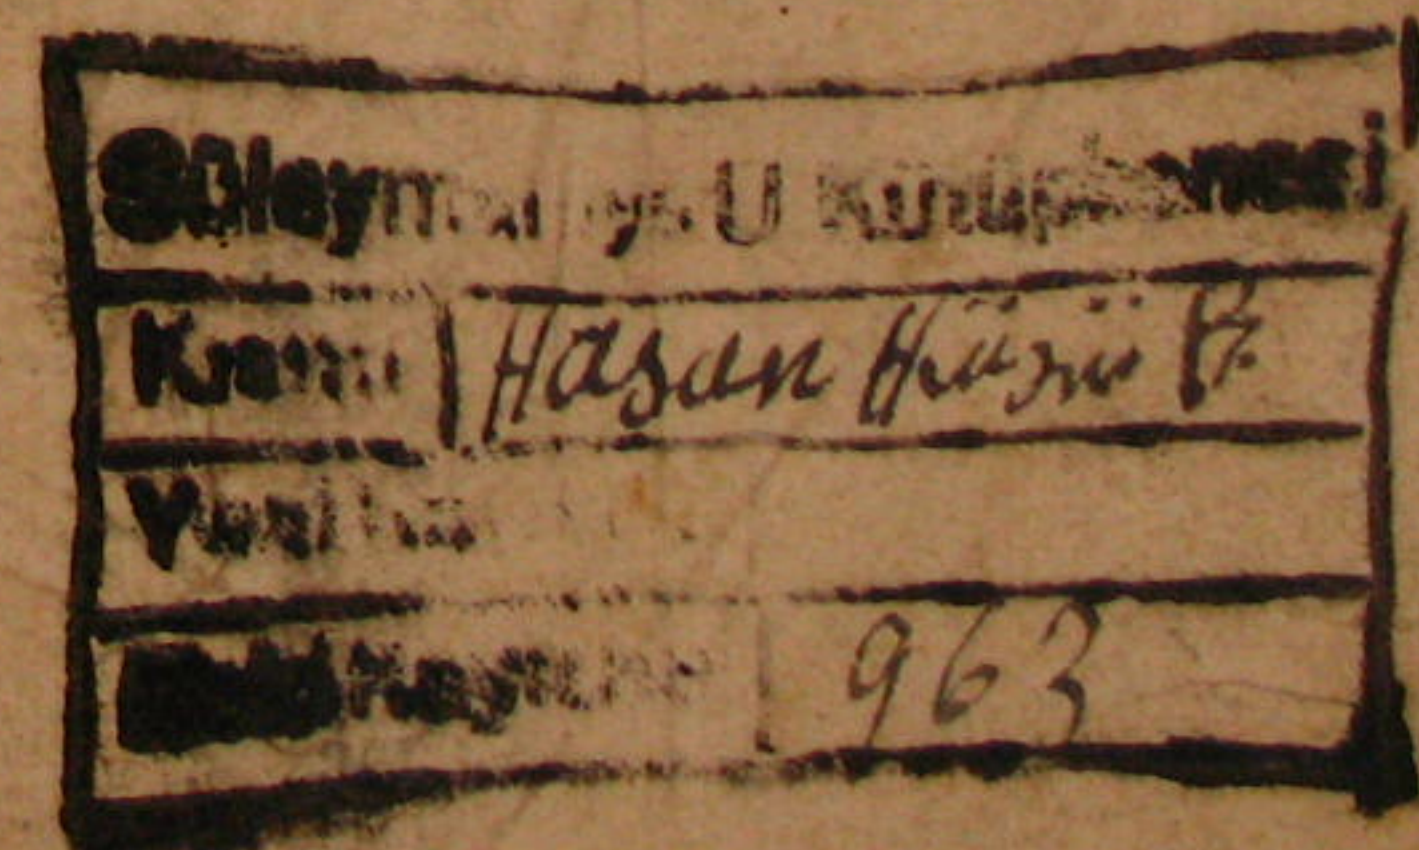 Süleymaniye U Kütüphanesi
Kısmı Hasan Hüsnü P.
Yeni
Kayıt No 963